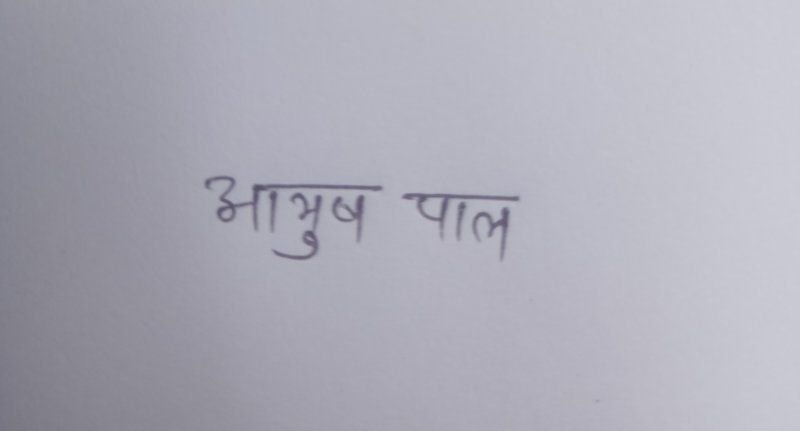 आयुष पाल